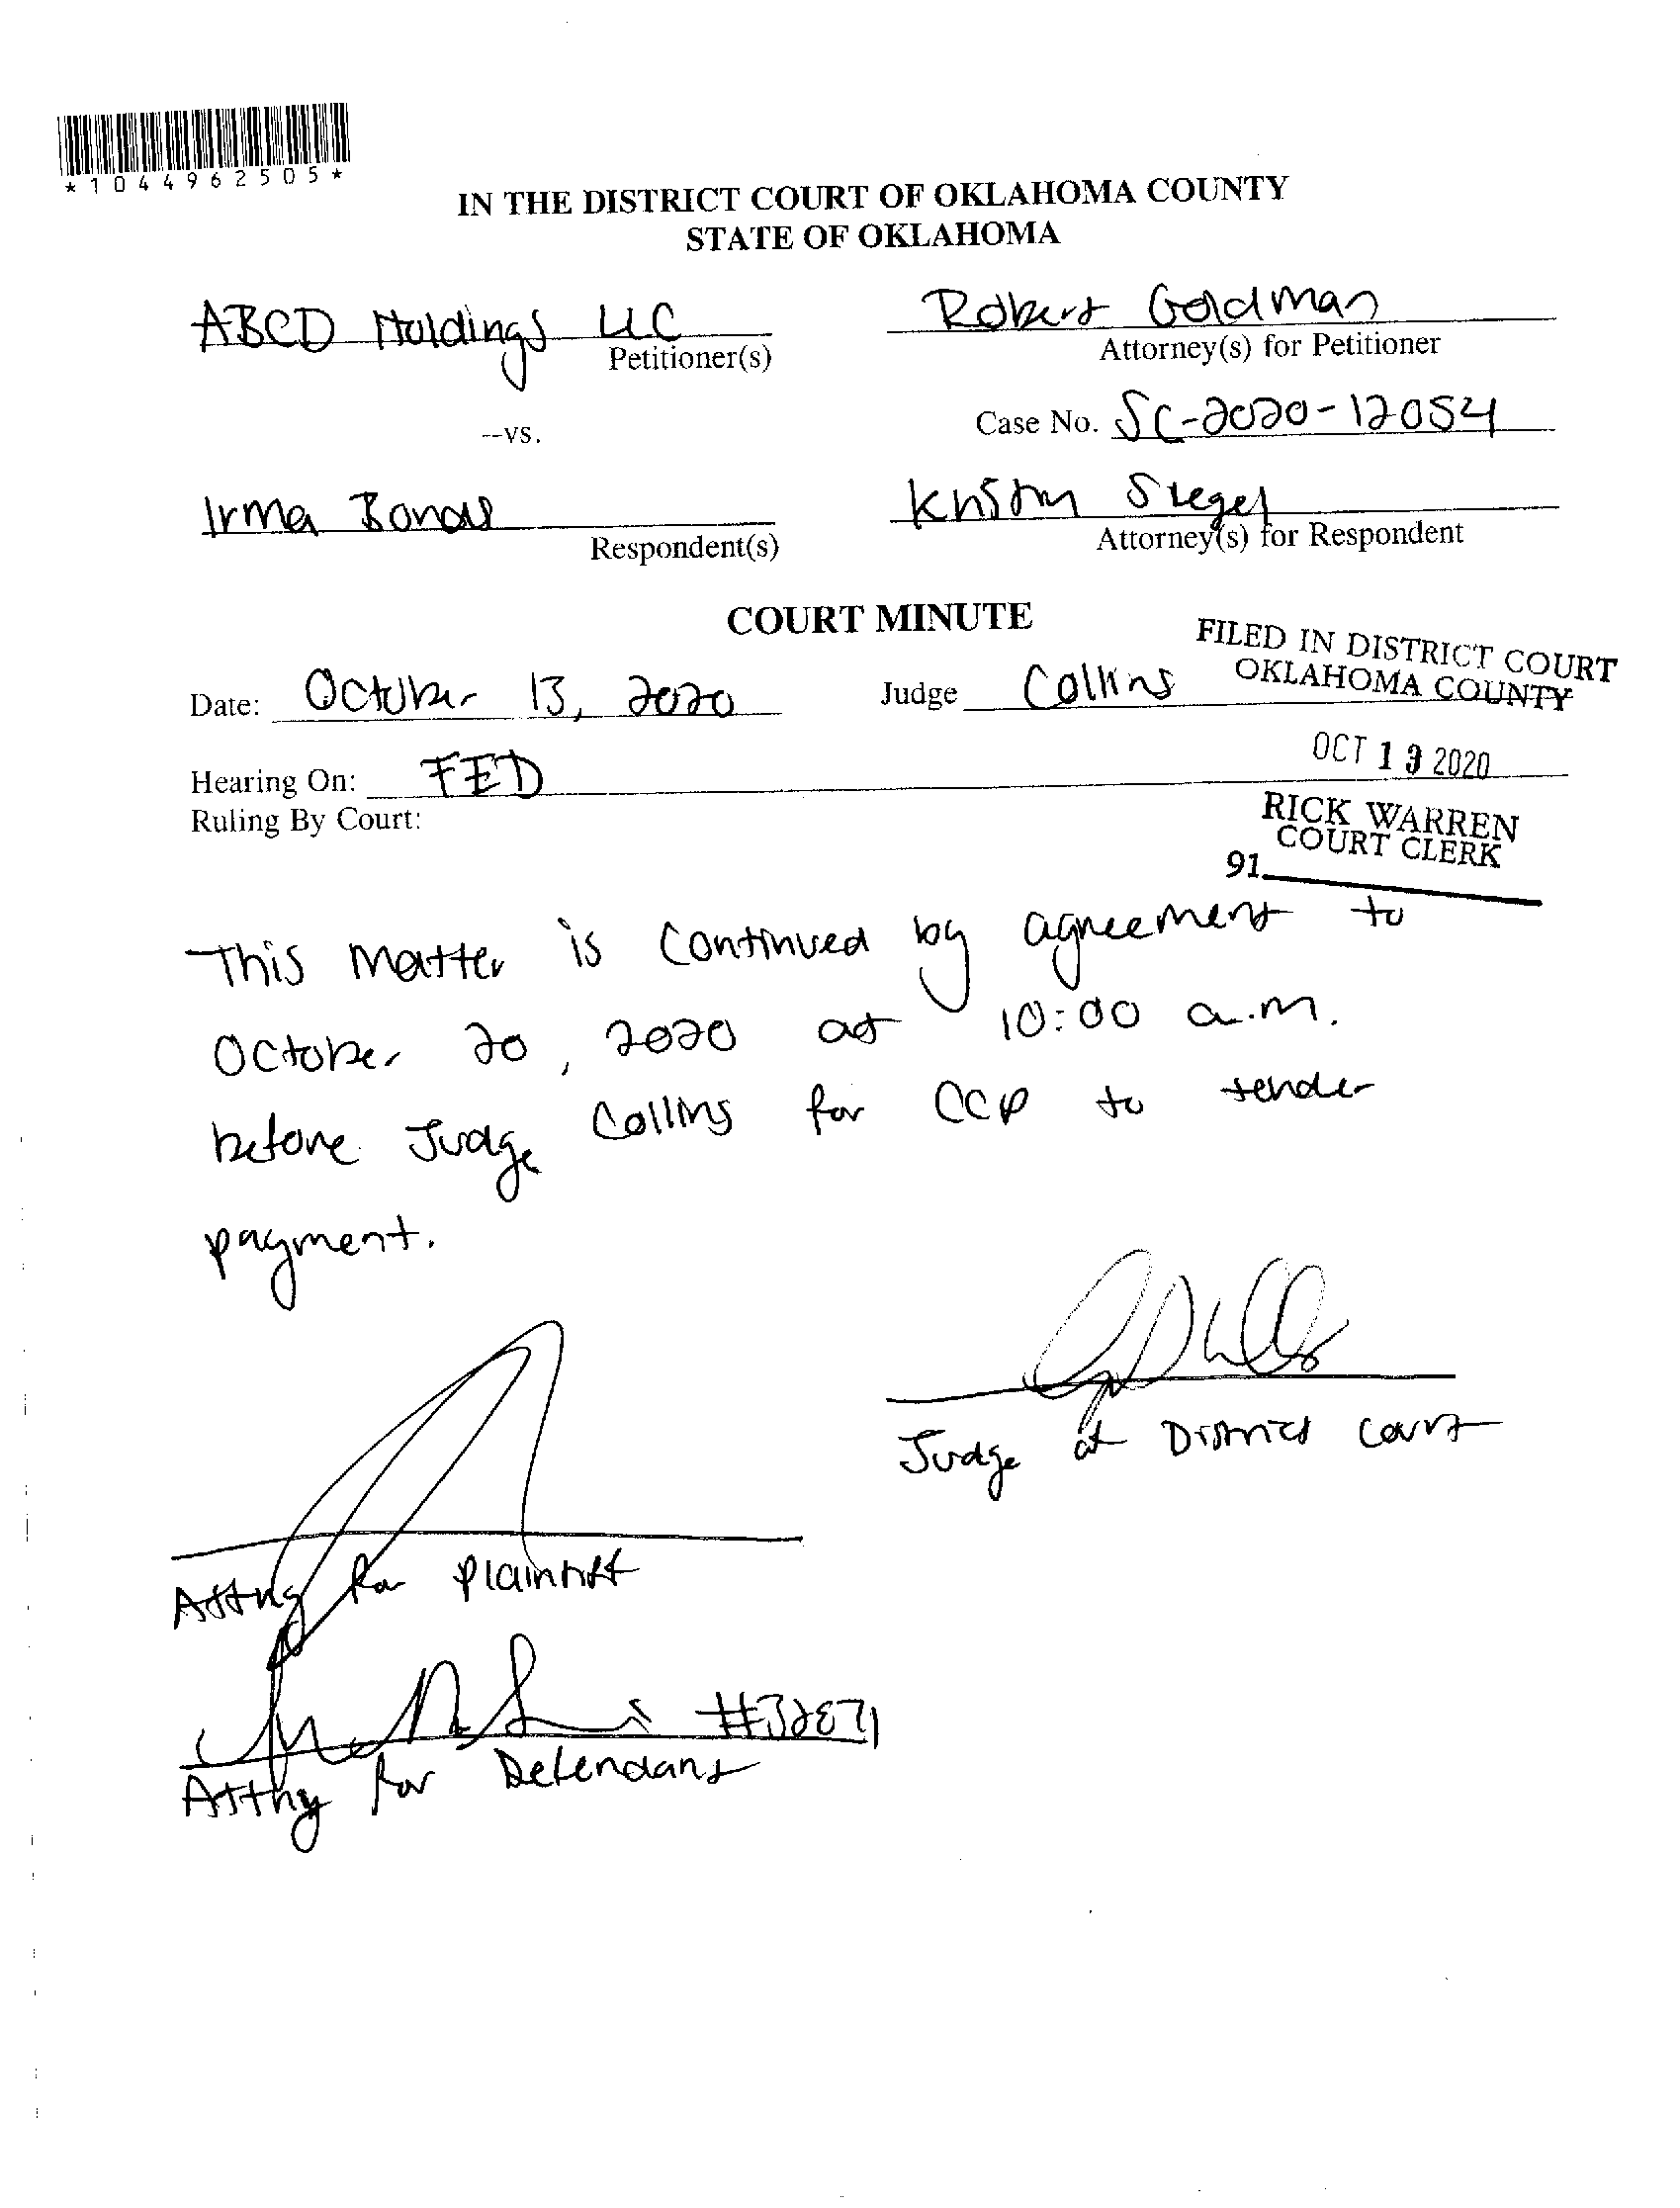 *1044962505*
IN THE DISTRICT COURT OF OKLAHOMA COUNTY
STATE OF OKLAHOMA
ABCD Holdings LLC
Petitioner(s)
Robert Goldman
Attorney(s) for Petitioner
--vs.
Case No. SC-2020-12054
Irma
Respondent(s)
Kristin Siegel
Attorney(s) for Respondent
COURT MINUTE
FILED IN DISTRICT COURT
OKLAHOMA COUNTY
Date: October 13, 2020
Judge Collins
OCT 13 2020
Hearing On: FED
Ruling By Court:
RICK WARREN
COURT CLERK
91
This matter is continued by agreement to
October 20, 2020 at 10:00 a.m.
before Judge Collins for CCP to tender
payment.
Judge of District Court
Attny for Plaintiff
#32871
Attny for Defendant